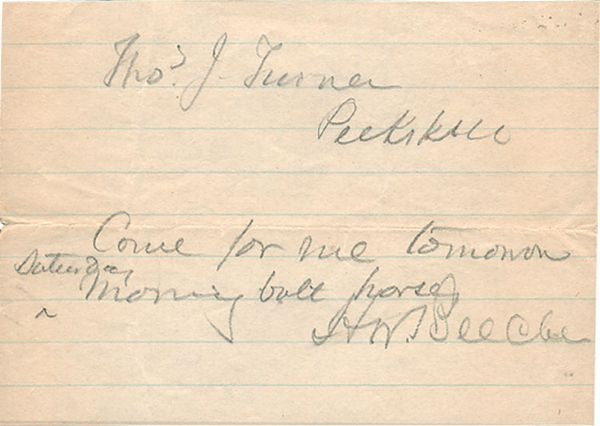 Thos. J. Turner
Peekskill
Come for me tomorrow
Saturday
^ Morning both horses
H W. Beecher